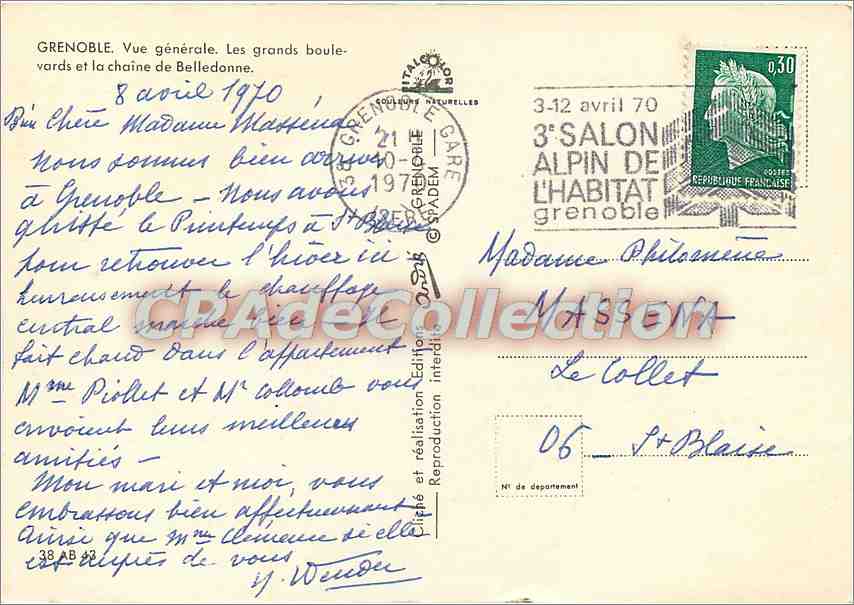 GRENOBLE. Vue générale. Les grands boule-
vards et la chaîne de Belledonne.
8 avril 1970
Bien Chère Madame Masséna
Nous sommes bien arrivés
à Grenoble - Nous avons
quitté le Printemps à St Blaise
pour retrouver l'hiver ici -
heureusement le chauffage
central marche bien il
fait chaud dans l'appartement
Mme Piollet et Mr Collomb vous
envoient leurs meilleures
amitiés -
Mon mari et moi, vous
embrassons bien affectueusement
Ainsi que Mme Clémence si elle
est auprès de vous
38 AB 43
ITALCOLOR
COULEURS NATURELLES
Cliché et réalisation Editions André GRENOBLE
Reproduction interdite © SPADEM
38 GRENOBLE GARE
21 H
10-4
1970
ISERE
3-12 avril 70
3e SALON
ALPIN DE
L'HABITAT
grenoble
0,30
POSTES
REPUBLIQUE FRANÇAISE
Madame Philomène
MASSENA
Le Collet
06 St Blaise
N° de département
CPAdeCollection